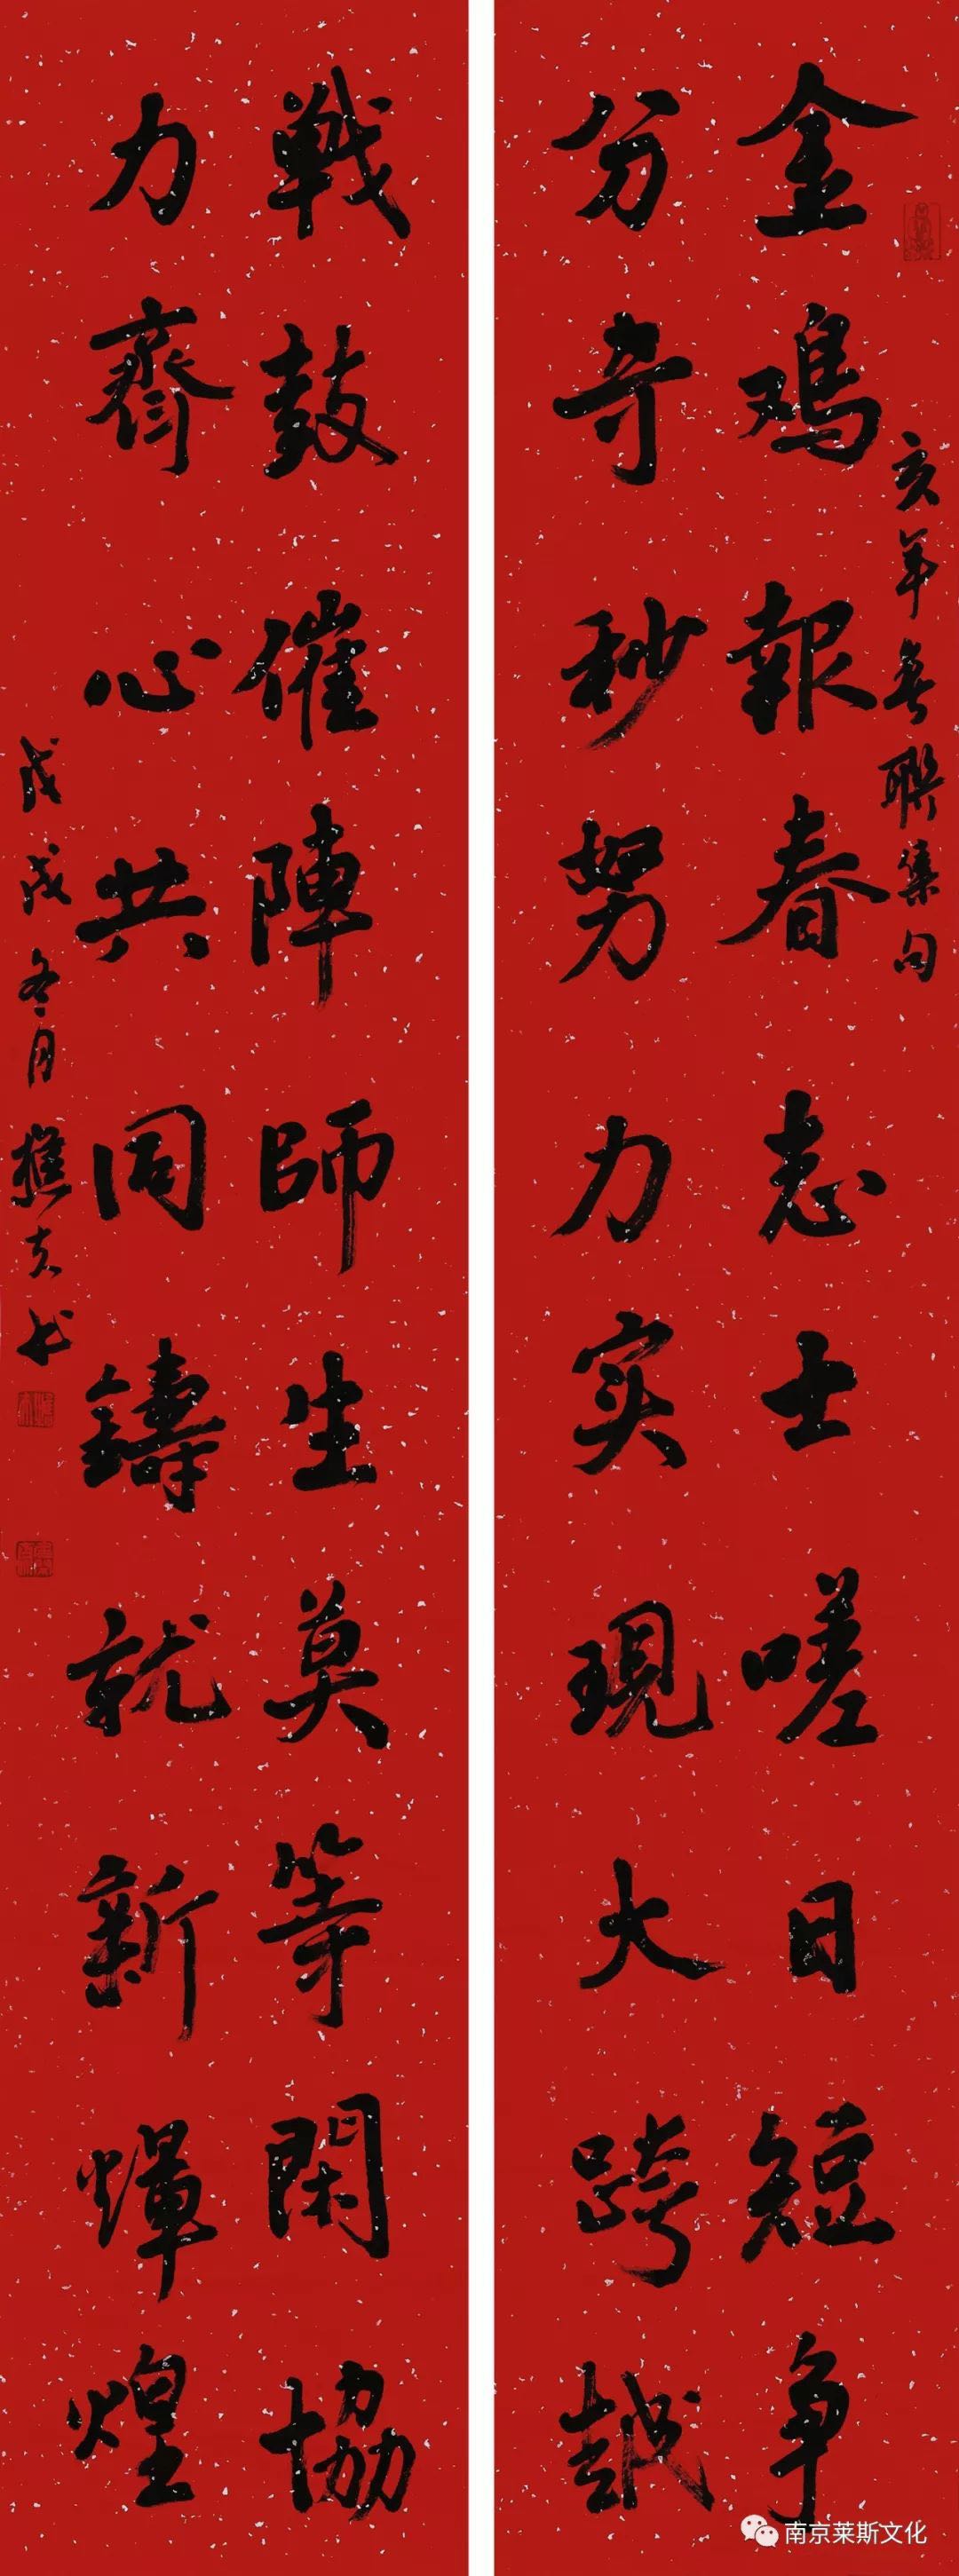 亥年春联集句
金鸡報春志士嗟日短争
分夺秒努力实現大跨越
戰鼓催陣師生莫等閑協
力齊心共同鑄就新煇煌
戊戌冬月樵夫书
南京莱斯文化